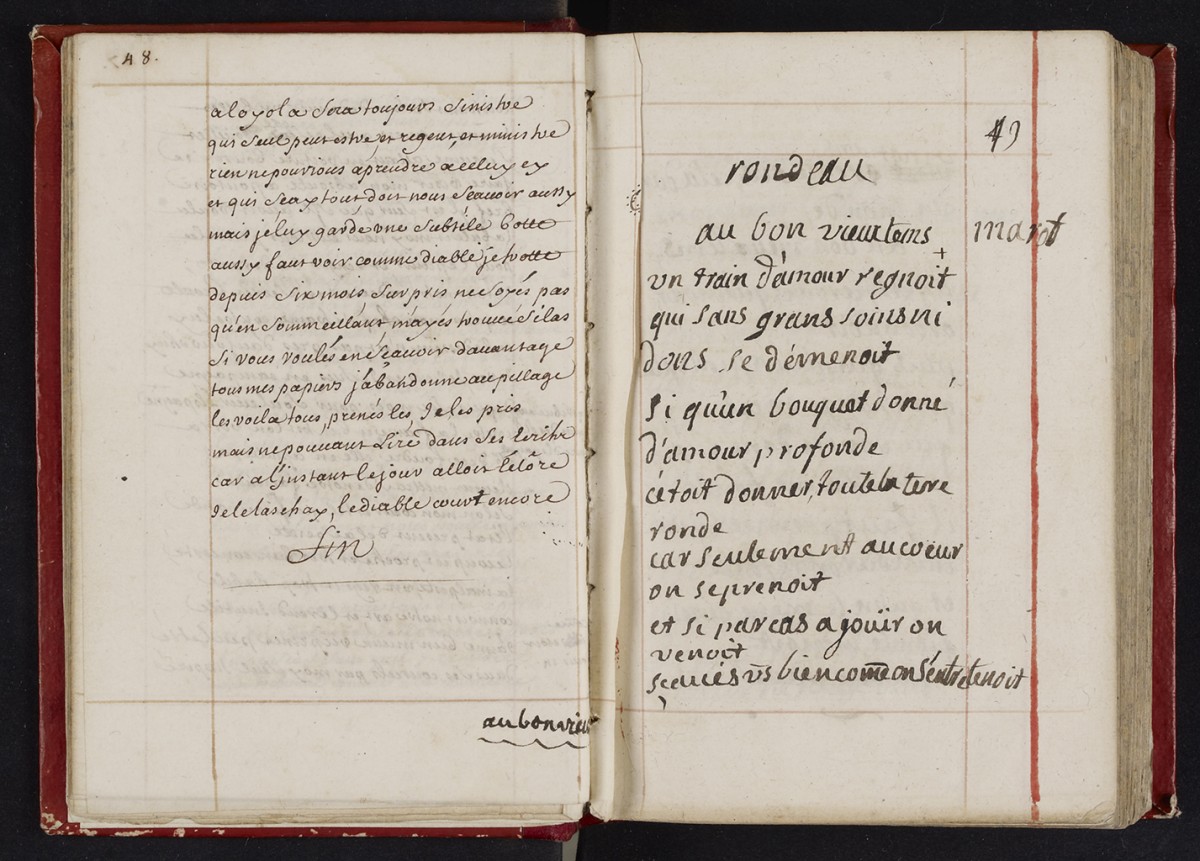 48.
a loyola sera toujours sinistre
qui seul peut estre, et regent, et ministre
rien ne pouvions aprendre a celuy cy
et qui sçax tout doit nous scauoir aussy
mais je luy garde vne subtile botte
aussy faut voir comme diable je trotte
depuis six mois surpris ne soyés pas
qu'en sommeillant m'ayés trouué si las
si vous voulés en sçauoir dauantage
tous mes papiers j'abandonne au pillage
les voila tous, prenés les, Je les pris
mais ne pouuant lire dans ses
car a l'jnstant le jour alloit
Je le laschay, le diable court encore
fin
au bon vieux
49
rondeau
au bon vieux tems marot
vn train d'amour regnoit
qui sans grans soins ni
dons se démenoit
si qu'un bouquet donné
d'amour profonde
c'étoit donner, toute la terre
ronde
car seulement au coeur
on se prenoit
et si par cas a joüir on
venoit
scaués vs bien comme on s'entretenoit